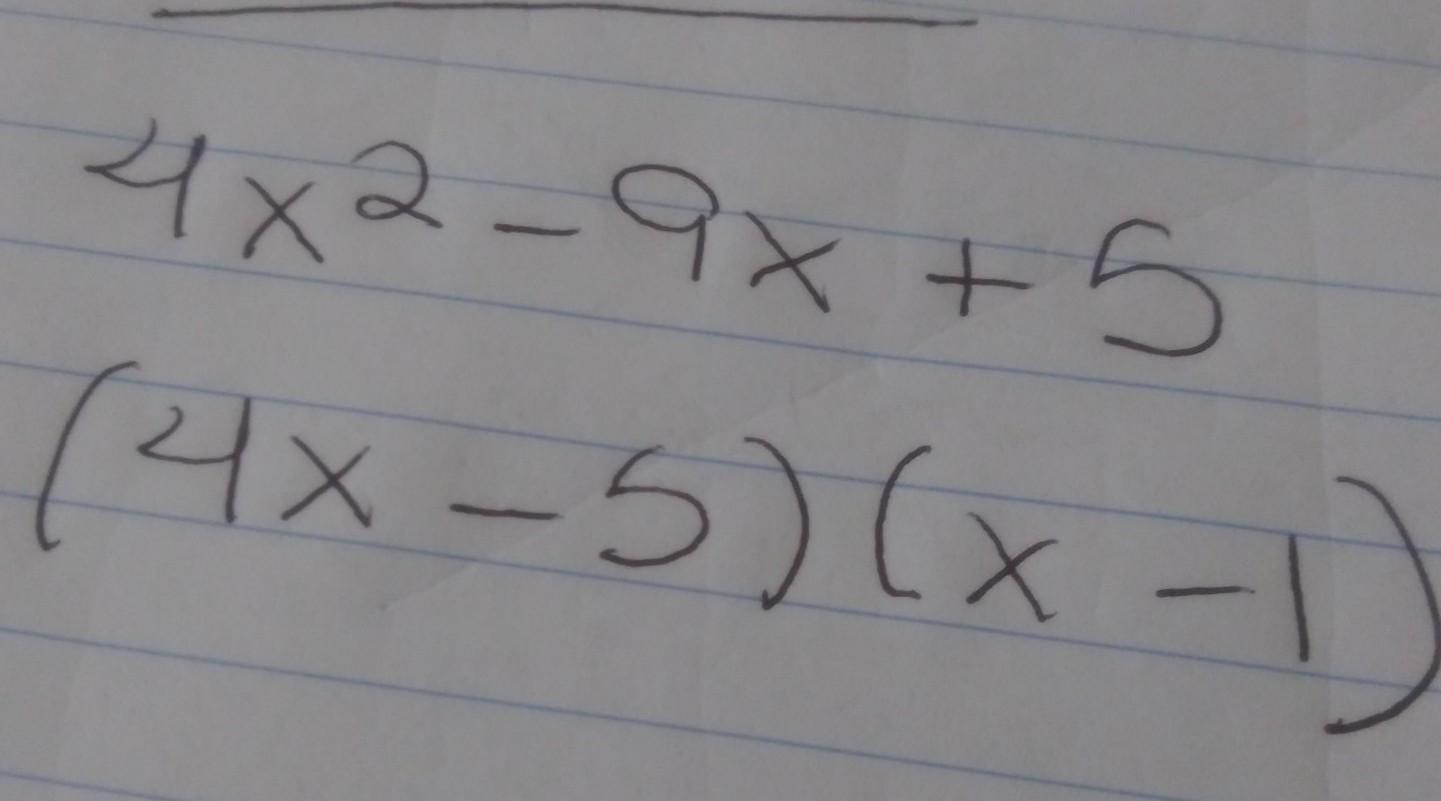 4x² - 9x + 5
(4x - 5)(x - 1)